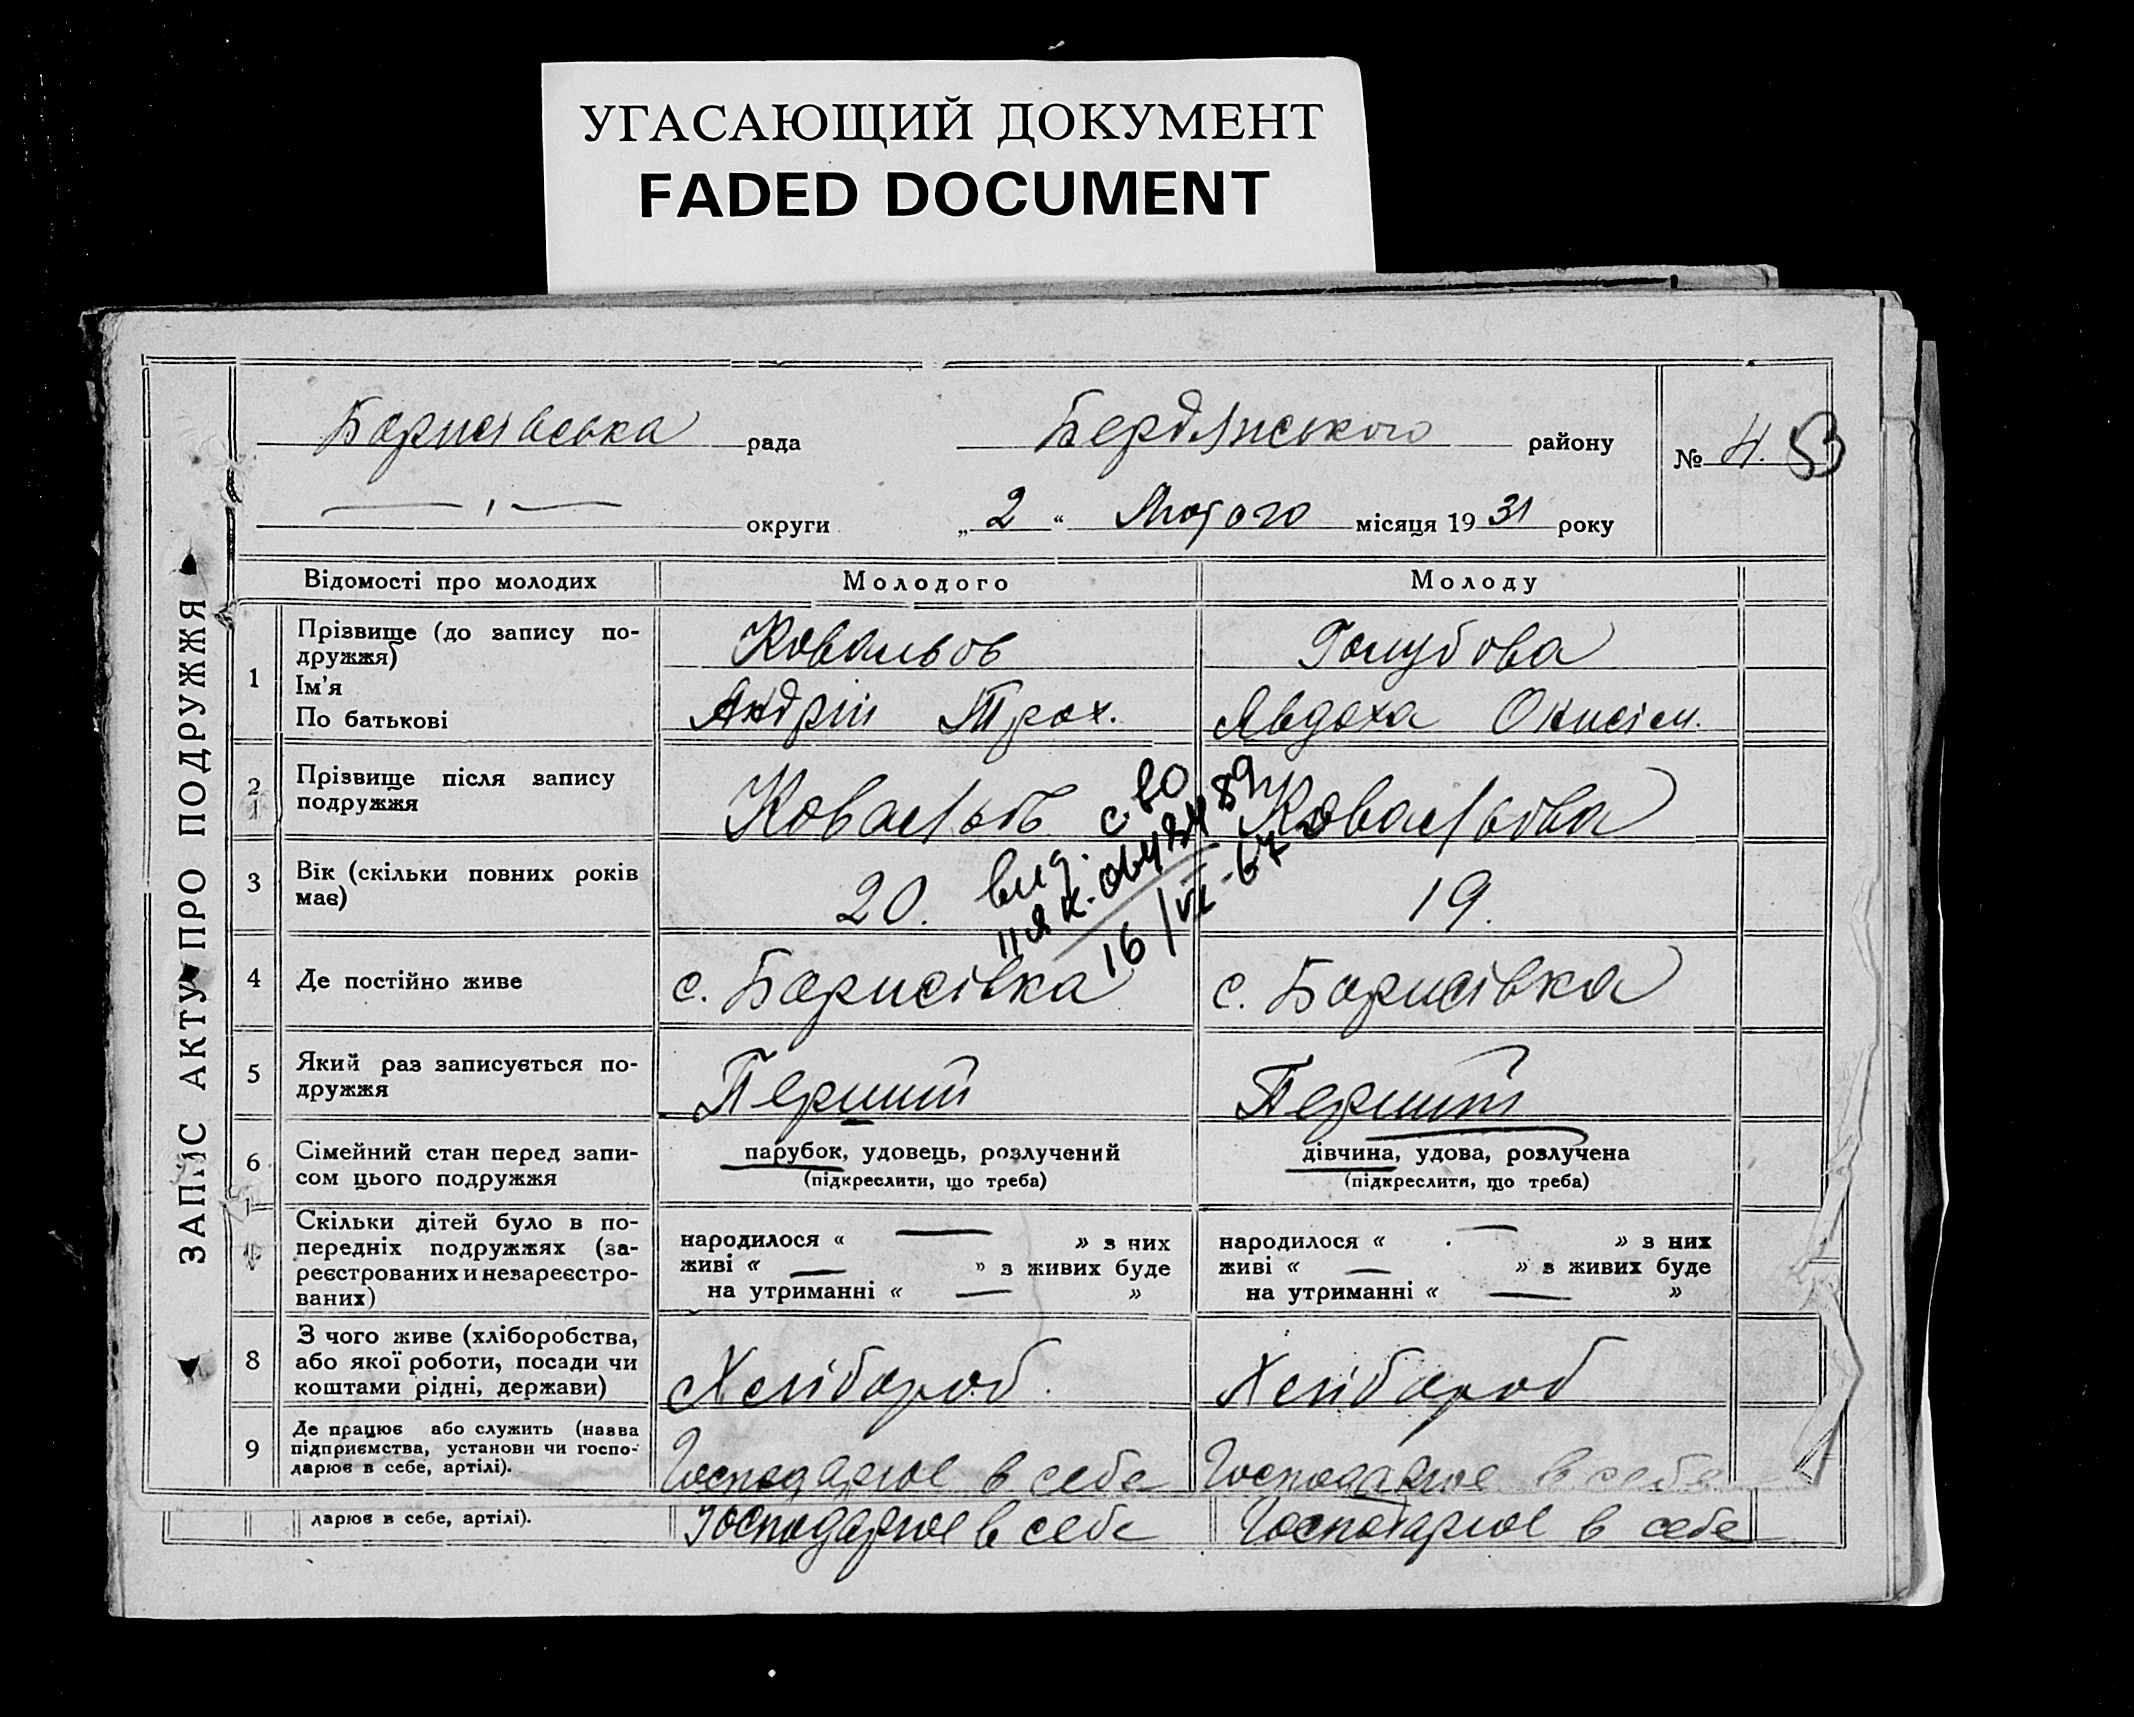 УГАСАЮЩИЙ ДОКУМЕНТ
FADED DOCUMENT
ЗАПИС АКТУ ПРО ПОДРУЖЖЯ
Борисівська рада Бердянського району № 4. 53
округи „ 2 “ Лютого місяця 19 31 року
Відомості про молодих Молодого Молоду
1 Прізвище (до запису по-
дружжя) Ковальов Голубова
Ім'я
По батькові Андрій Трох. Явдоха Онисім.
2 Прізвище після запису
подружжя Ковальов Ковальова
вид. с во
IIЯ К. 0643489
16/VI-67
3 Вік (скільки повних років
має) 20. 19.
4 Де постійно живе с. Борисівка с. Борисівка
5 Який раз записується по-
дружжя Перший Перший
6 Сімейний стан перед запи-
сом цього подружжя парубок, удовець, розлучений дівчина, удова, розлучена
(підкреслити, що треба) (підкреслити, що треба)
Скільки дітей було в по-
передніх подружжях (за-
реєстрованих и незареєстро-
ваних)
народилося « — » з них народилося « — » з них
живі « — » з живих буде живі « — » з живих буде
на утриманні « — » на утриманні « — »
8 З чого живе (хліборобства,
або якої роботи, посади чи
коштами рідні, держави) Хлібороб. Хлібороб
9 Де працює або служить (назва
підприємства, установи чи госпо-
дарює в себе, артілі). Господарює в себе Господарює в себе
дарює в себе, артілі). Господарює в себе Господарює в себе